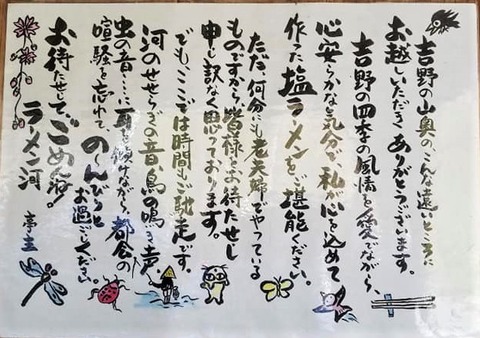 吉野の山奥の、こんな遠いところに
お越しいただき、ありがとうございます。
吉野の四季の風情を愛でながら、
心安らかな気分で、私が心を込めて
作った塩ラーメンをご堪能ください。
ただ、何分にも老夫婦でやっている
ものですから、皆様をお待たせし
申し訳なく思っております。
でも、ここでは時間もご馳走です。
河のせせらぎの音、鳥の鳴き声
虫の音……耳を傾けながら、都会の
喧騒を忘れて、のんびりと
お過ごしください。
お待たせして、ごめんネ!
ラーメン河 亭主